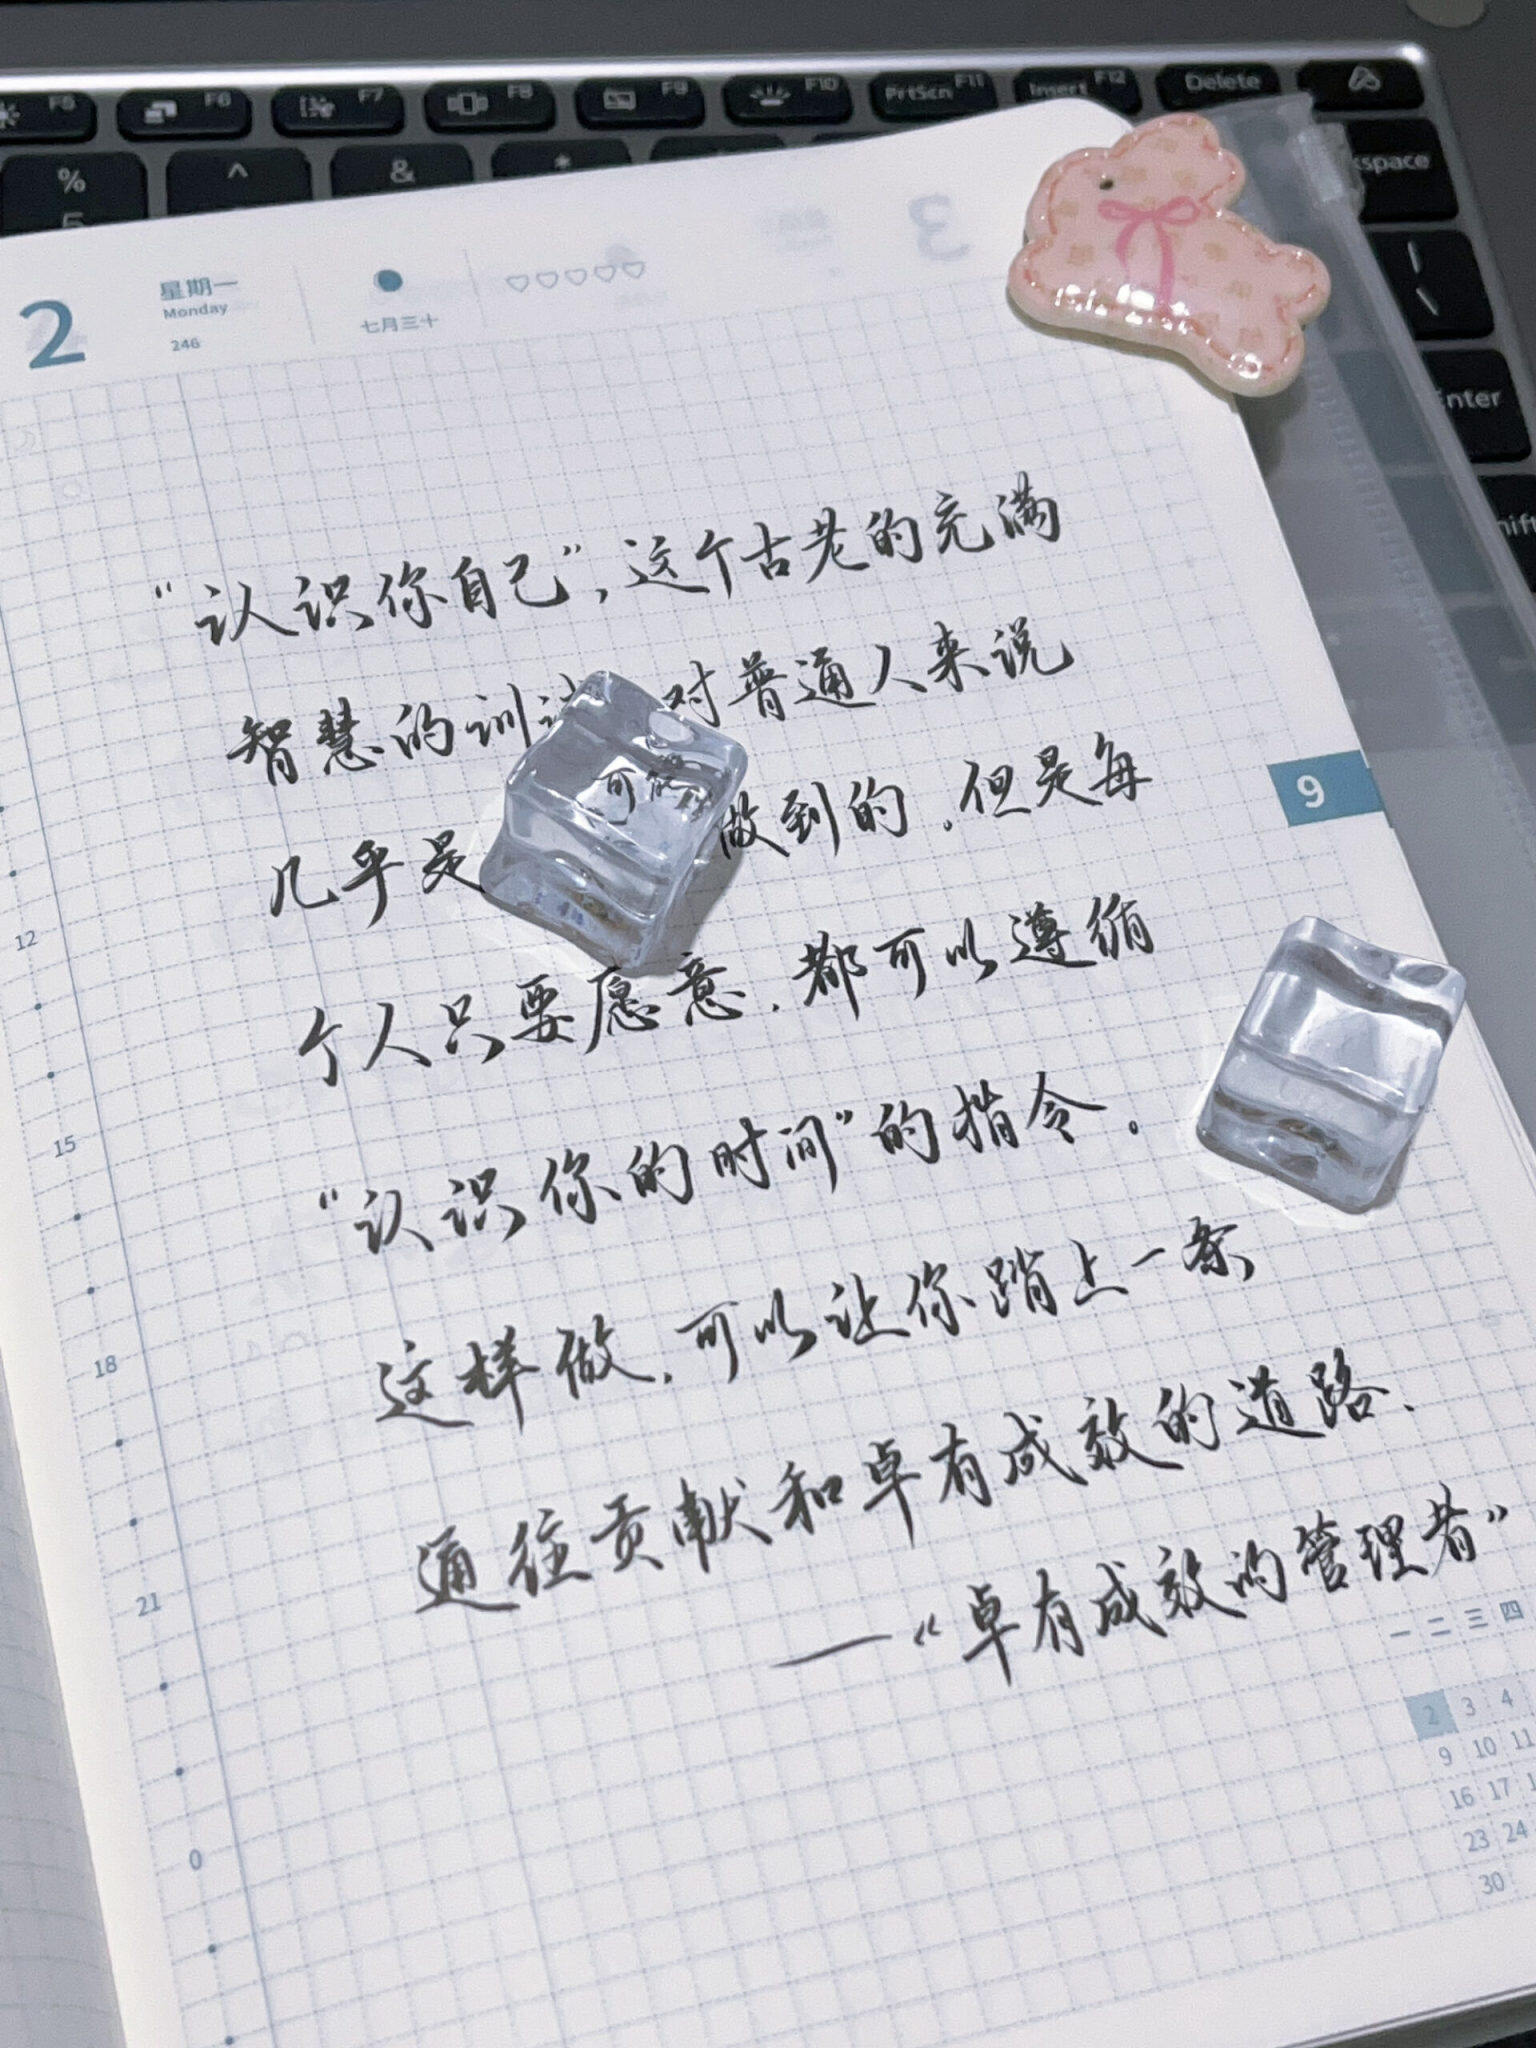 F5 F6 F7 F8 F9 F10 PrtScn F11 Insert F12 Delete
% ^ & *
5
space
Enter
3
2 星期一
Monday
246
七月三十
“认识你自己”,这个古老的充满
智慧的训 对普通人来说
几乎是 可能做到的.但是每
个人只要愿意.都可以遵循
“认识你的时间”的指令。
这样做.可以让你踏上一条
通往贡献和卓有成效的道路.
—“卓有成效的管理者”
9
12
15
18
21
0
一 二 三 四
2 3 4
9 10 11
16 17
23 24
30